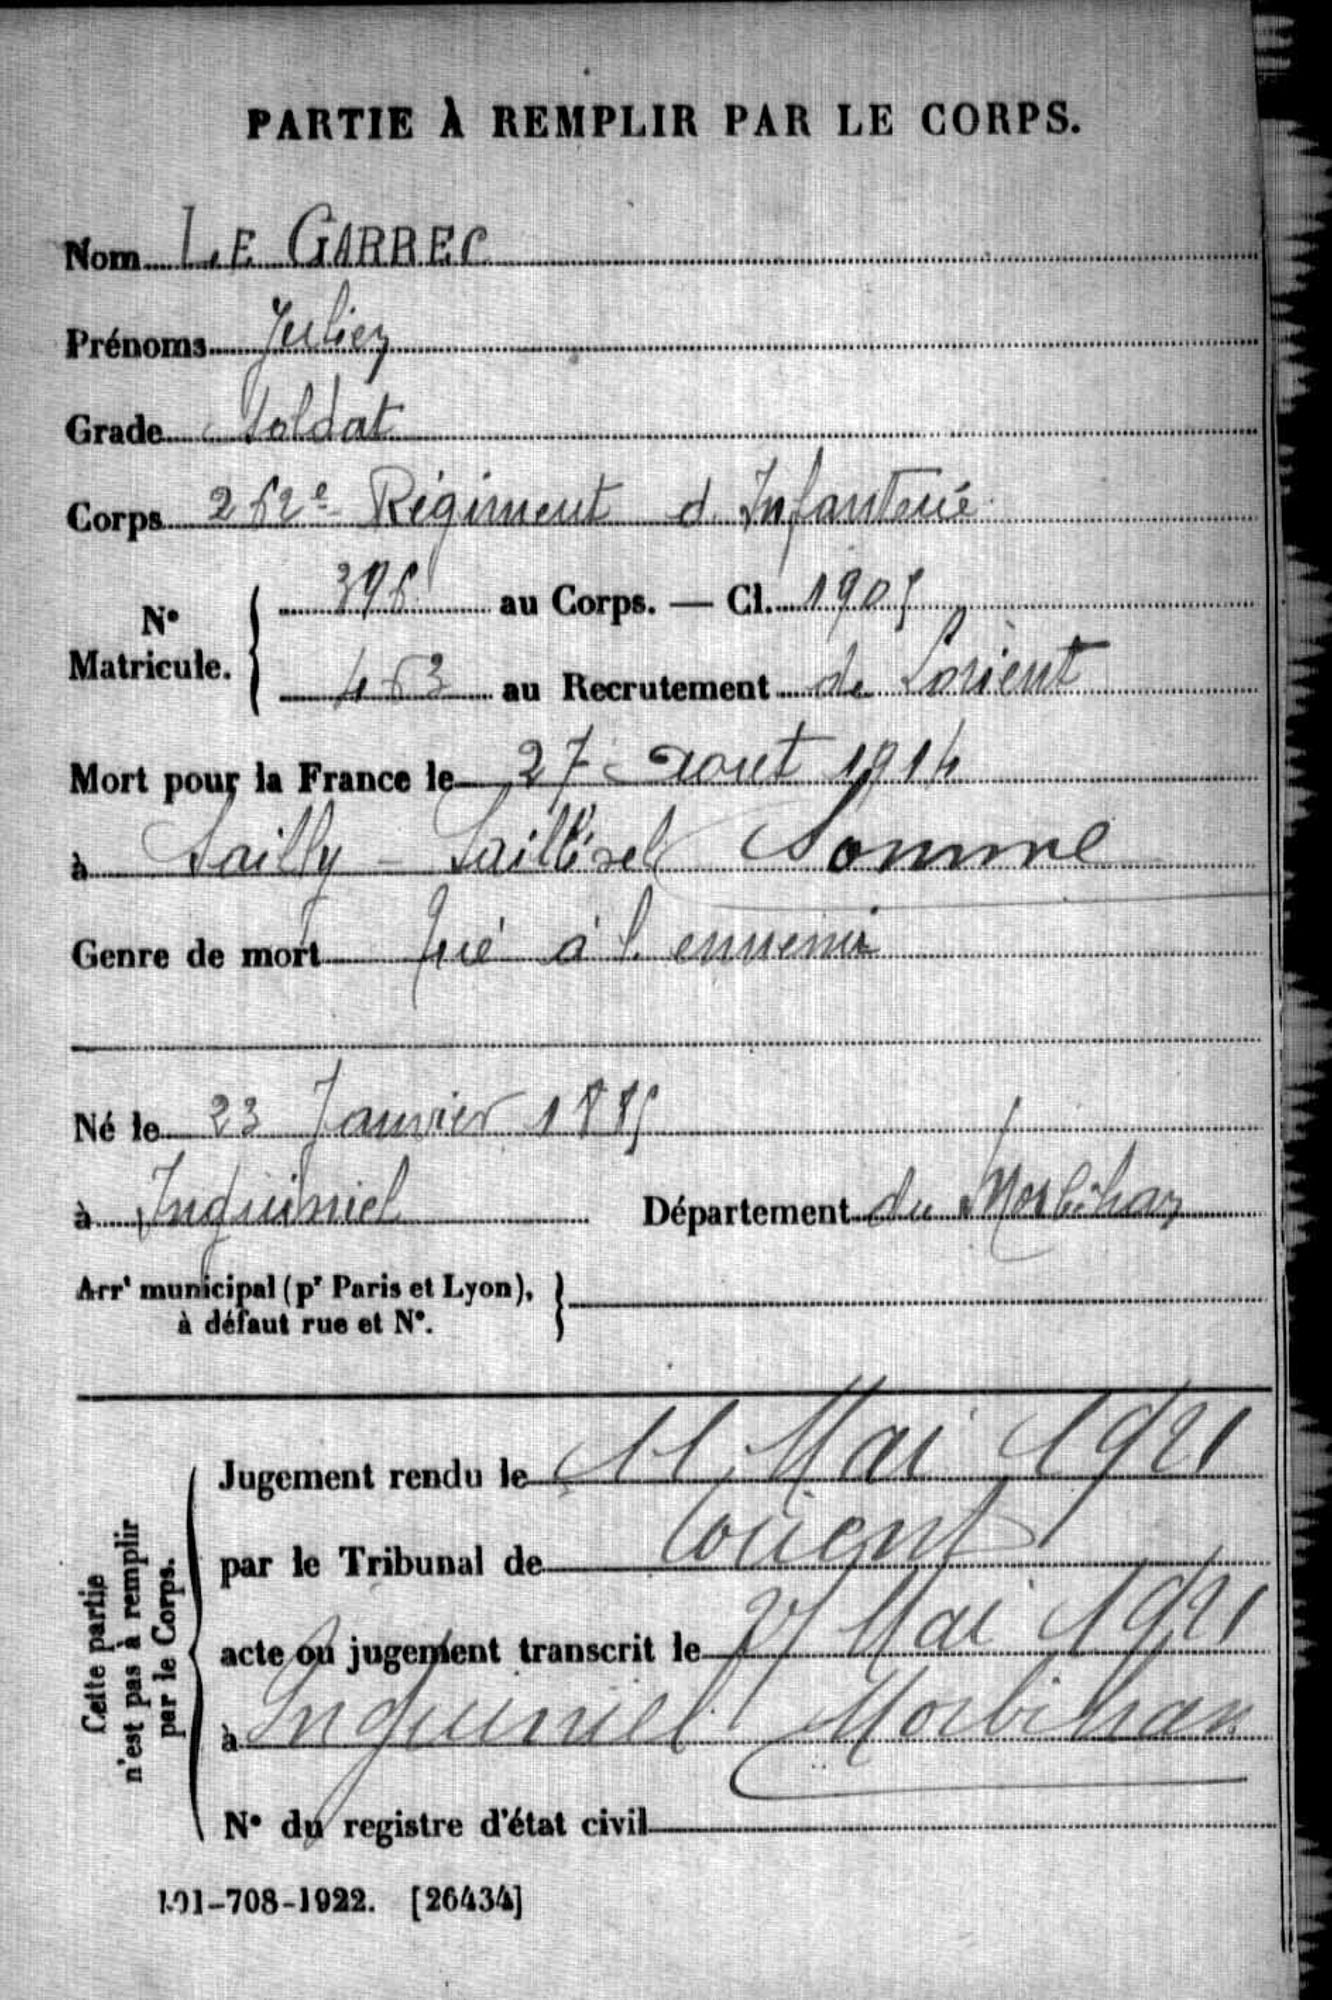 PARTIE À REMPLIR PAR LE CORPS.
Nom LE GARREC
Prénoms Julien
Grade Soldat
Corps 262e Régiment d Infanterie
N° Matricule. 396 au Corps. — Cl. 1905
463 au Recrutement de Lorient
Mort pour la France le 27 aout 1914
à Sailly - Saillisel Somme
Genre de mort Tué à l ennemi
Né le 23 Janvier 1885
à Inguiniel Département du Morbihan
Arrt municipal (pr Paris et Lyon),
à défaut rue et N°.
Cette partie
n'est pas à remplir
par le Corps.
Jugement rendu le 11 Mai 1921
par le Tribunal de Lorient
acte ou jugement transcrit le Mai 1921
à Inguiniel Morbihan
N° du registre d'état civil
101-708-1922. [26434]